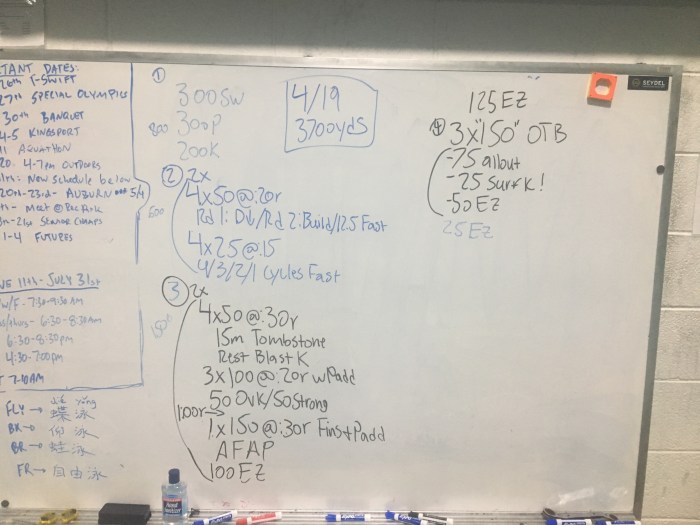 TANT DATES:
26th T-SWIFT
27th SPECIAL OLYMPICS
30th BANQUET
4-5 KINGSPORT
AQUATHON
20. 4-7pm OUTDOORS
New Schedule below
20th-23rd- AUBURN 5/4
Meet @ Rec Park
21st STATE CHAMPS
1-4 FUTURES
NE 11th - JULY 31st
W/F - 7:30-9:30 AM
6:30-8:30AM
6:30-8:30pm
4:30-7:00pm
7-10AM
dié yǒng
FLY → 蝶泳
BK → 仰泳
BR → 蛙泳
FR → 自由泳
①
300 SW
800 300P
200K
4/19
3700yds
② 2x
4x50@:20r
600
Rd 1: Dr/Rd 2: Build/12.5 Fast
4x25@:15
4/3/2/1 Cycles Fast
③ 2x
4x50@:30r
1500
15m Tombstone
Rest Blast K
3x100@:20r w Padd
50 OvK/50 Strong
1:00r →
1x150@:30r Fins+Padd
AFAP
100 EZ
125 EZ
④ 3x"150" OTB
-75 allout
-25 Surf K!
-50 EZ
25 EZ
SEYDEL